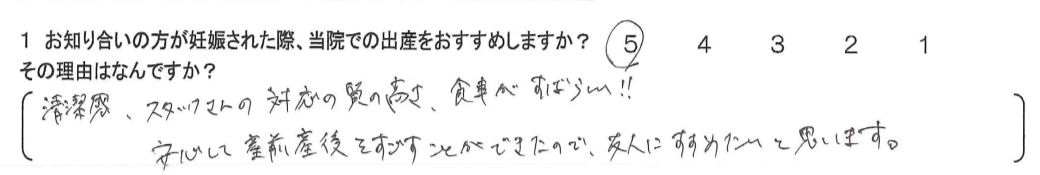 1 お知り合いの方が妊娠された際、当院での出産をおすすめしますか? 5 4 3 2 1
その理由はなんですか?
清潔感、スタッフさんの対応の質の高さ、食事がすばらしい!!
安心して産前産後をすごすことができたので、友人にすすめたいと思います。